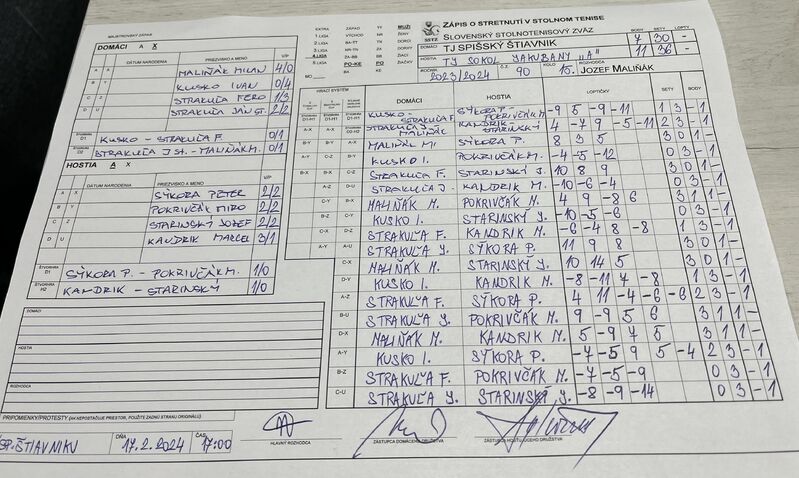 MAJSTROVSKÝ ZÁPAS
ZÁPIS O STRETNUTÍ V STOLNOM TENISE
SLOVENSKÝ STOLNOTENISOVÝ ZVÄZ
BODY SETY LOPTY
DOMÁCI TJ SPIŠSKÝ ŠTIAVNIK 7 30 -
HOSTIA TJ SOKOL JAKUBANY "A" 11 36 -
2023/2024 Č.Z. 90 KOLO 15. ROZHODCA JOZEF MALIŇÁK
EXTRA ZÁPAD TY MUŽI
1.LIGA VÝCHOD NR ŽENY
2.LIGA BA-TT TN DORCI
3.LIGA NR-TN ZA DORKY
4.LIGA ZA-BB BB ŽIACI
5.LIGA PO-KE PO ŽIAČKY
DOMÁCI A X
DÁTUM NARODENIA PRIEZVISKO A MENO V/P
A X MALIŇÁK MILAN 4/0
B Y KUSKO IVAN 0/4
C Z STRAKUĽA FERO 1/3
D U STRAKUĽA JÁN ST. 2/2
ŠTVORHRA D1 KUSKO - STRAKUĽA F. 0/1
ŠTVORHRA D2 STRAKUĽA J.ST. - MALIŇÁK M. 0/1
HOSTIA A X
DÁTUM NARODENIA PRIEZVISKO A MENO V/P
A X SÝKORA PETER 2/2
B Y POKRIVČÁK MIRO 2/2
C Z STARINSKÝ JOZEF 2/2
D U KANDRIK MARCEL 3/1
ŠTVORHRA D1 SÝKORA P. - POKRIVČÁK M. 1/0
ŠTVORHRA H2 KANDRIK - STARINSKÝ 1/0
HRACÍ SYSTÉM DOMÁCI HOSTIA LOPTIČKY SETY BODY
KUSKO - STRAKUĽA F. SÝKORA P. - POKRIVČÁK M. -9 5 -9 -11 1 3 -1
STRAKUĽA - MALIŇÁK KANDRIK - STARINSKÝ 4 -7 9 -5 -11 2 3 -1
A-X MALIŇÁK M. SÝKORA P. 8 3 5 3 0 1 -
B-Y KUSKO I. POKRIVČÁK M. -4 -5 -12 0 3 -1
STRAKUĽA F. STARINSKÝ J. 10 8 9 3 0 1 -
D-U STRAKUĽA J. KANDRIK M. -10 -6 -4 0 3 -1
MALIŇÁK M. POKRIVČÁK M. 4 9 -8 6 3 1 1 -
KUSKO I. STARINSKÝ J. -10 -5 -6 0 3 -1
STRAKUĽA F. KANDRIK M. -6 -4 8 -8 1 3 -1
A-U STRAKUĽA J. SÝKORA P. 11 9 8 3 0 1 -
C-X MALIŇÁK M. STARINSKÝ J. 10 14 5 3 0 1 -
D-Y KUSKO I. KANDRIK M. -8 -11 7 -8 1 3 -1
A-Z STRAKUĽA F. SÝKORA P. 4 11 -4 -6 -6 2 3 -1
B-U STRAKUĽA J. POKRIVČÁK M. 9 -9 5 6 3 1 1 -
D-X MALIŇÁK M. KANDRIK M. 5 -9 7 5 3 1 1 -
A-Y KUSKO I. SÝKORA P. -7 -5 9 5 -4 2 3 -1
B-Z STRAKUĽA F. POKRIVČÁK M. -7 -5 -9 0 3 -1
C-U STRAKUĽA J. STARINSKÝ J. -8 -9 -14 0 3 -1
DOMÁCI
HOSTIA
ROZHODCA
PRIPOMIENKY/PROTESTY (AK NEPOSTAČUJE PRIESTOR, POUŽITE ZADNÚ STRANU ORIGINÁLU)
SP. ŠTIAVNIKU DŇA 17.2.2024 ČAS 17:00
HLAVNÝ ROZHODCA ZÁSTUPCA DOMÁCEHO DRUŽSTVA ZÁSTUPCA HOSŤUJÚCEHO DRUŽSTVA